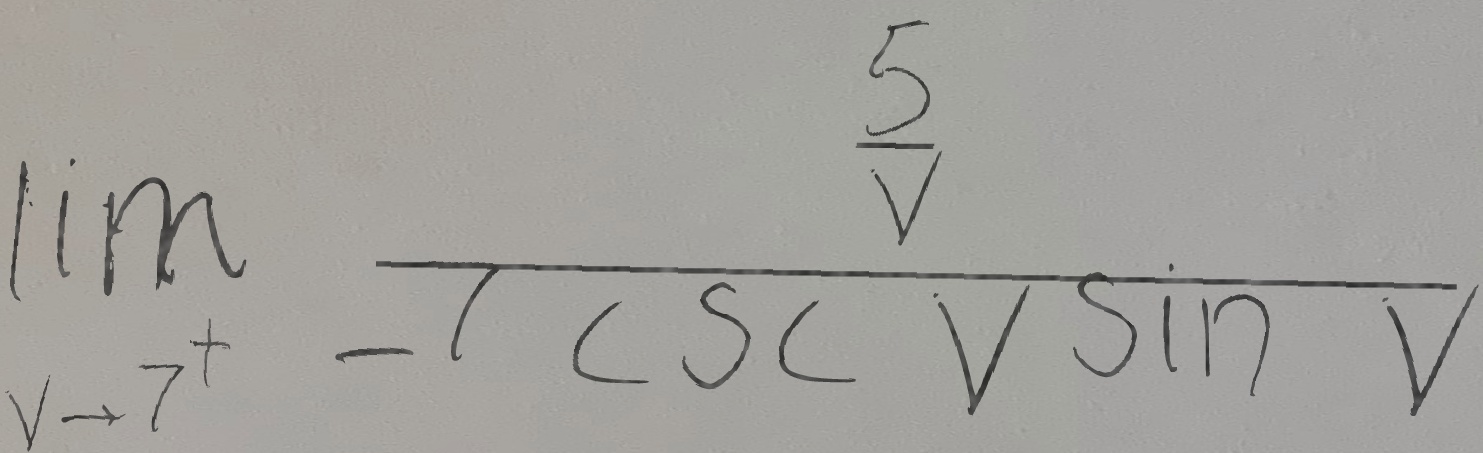 lim_{v \to 7^+} \frac{\frac{5}{v}}{-7 \csc v \sin v}